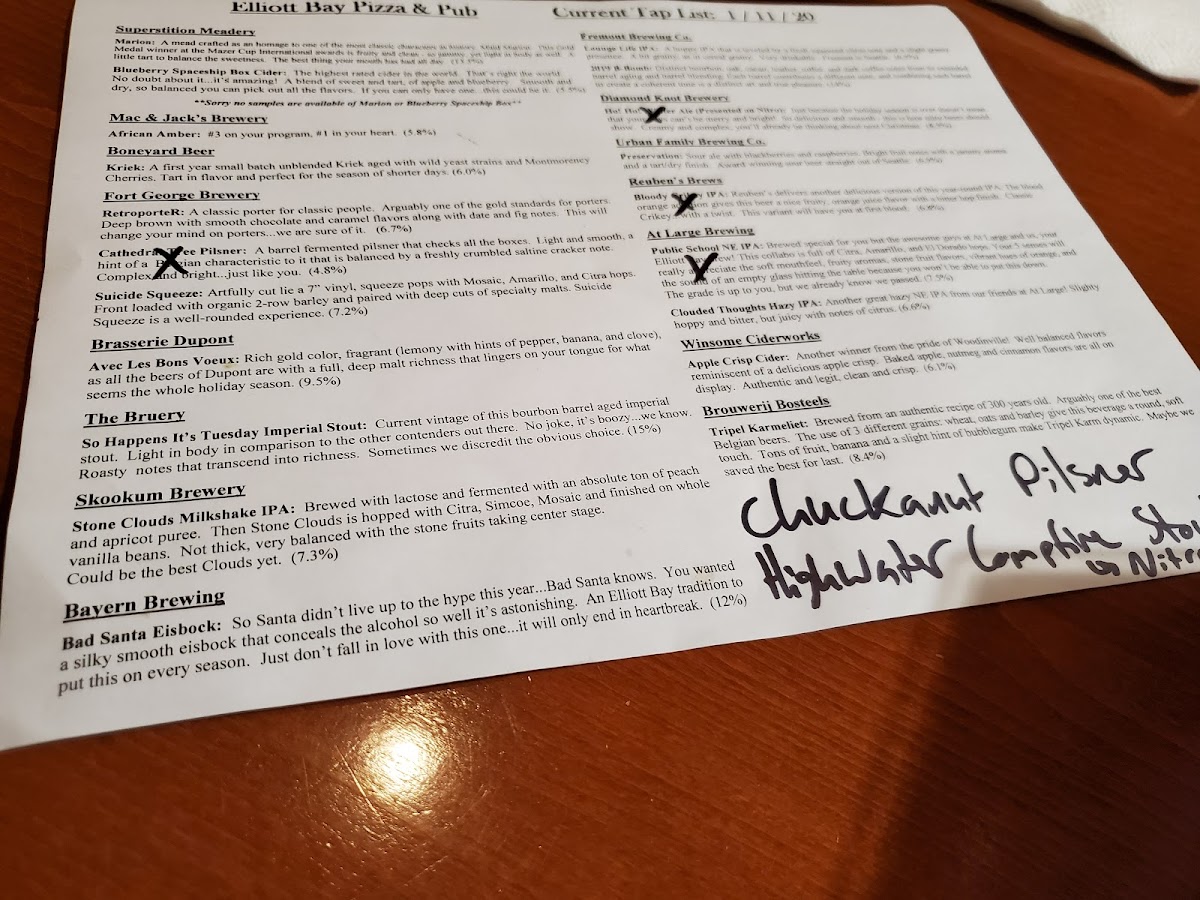 Elliott Bay Pizza & Pub
Current Tap List: 1 / 11 / '20
Superstition Meadery
Marion: A mead crafted as an homage to one of the most classic characters in history, Maid Marion. This Gold
Medal winner at the Mazer Cup International awards is fruity and clean
little tart to balance the sweetness. The best thing your mouth has had all day. (13.5%)
Blueberry Spaceship Box Cider: The highest rated cider in the world. That's right the world.
No doubt about it...it's amazing! A blend of sweet and tart, of apple and blueberry. Smooth and
dry, so balanced you can pick out all the flavors. If you can only have one...this could be it. (5.5%)
**Sorry no samples are available of Marion or Blueberry Spaceship Box**
Mac & Jack's Brewery
African Amber: #3 on your program, #1 in your heart. (5.8%)
Boneyard Beer
Kriek: A first year small batch unblended Kriek aged with wild yeast strains and Montmorency
Cherries. Tart in flavor and perfect for the season of shorter days. (6.0%)
Fort George Brewery
RetroporteR: A classic porter for classic people. Arguably one of the gold standards for porters.
Deep brown with smooth chocolate and caramel flavors along with date and fig notes. This will
change your mind on porters...we are sure of it. (6.7%)
Cathedral Tree Pilsner: A barrel fermented pilsner that checks all the boxes. Light and smooth, a
hint of a Belgian characteristic to it that is balanced by a freshly crumbled saltine cracker note.
Complex and bright...just like you. (4.8%)
Suicide Squeeze: Artfully cut lie a 7" vinyl, squeeze pops with Mosaic, Amarillo, and Citra hops.
Front loaded with organic 2-row barley and paired with deep cuts of specialty malts. Suicide
Squeeze is a well-rounded experience. (7.2%)
Brasserie Dupont
Avec Les Bons Voeux: Rich gold color, fragrant (lemony with hints of pepper, banana, and clove),
as all the beers of Dupont are with a full, deep malt richness that lingers on your tongue for what
seems the whole holiday season. (9.5%)
The Bruery
So Happens It's Tuesday Imperial Stout: Current vintage of this bourbon barrel aged imperial
stout. Light in body in comparison to the other contenders out there. No joke, it's boozy...we know.
Roasty notes that transcend into richness. Sometimes we discredit the obvious choice. (15%)
Skookum Brewery
Stone Clouds Milkshake IPA: Brewed with lactose and fermented with an absolute ton of peach
and apricot puree. Then Stone Clouds is hopped with Citra, Simcoe, Mosaic and finished on whole
vanilla beans. Not thick, very balanced with the stone fruits taking center stage.
Could be the best Clouds yet. (7.3%)
Bayern Brewing
Bad Santa Eisbock: So Santa didn't live up to the hype this year...Bad Santa knows. You wanted
a silky smooth eisbock that conceals the alcohol so well it's astonishing. An Elliott Bay tradition to
put this on every season. Just don't fall in love with this one...it will only end in heartbreak. (12%)
Fremont Brewing Co.
Lounge Life IPA: A hoppy IPA
Diamond Knot Brewery
Ho! Ho! Ale (Presented on Nitro): Just because the holiday season is over doesn't mean
that you can't be merry and bright! So delicious and smooth - this is how spice beers should
show. Creamy and complex, you'll already be thinking about next Christmas.
Urban Family Brewing Co.
Preservation: Sour ale with blackberries and raspberries. Bright fruit notes with a jammy aroma
and a tart/dry finish. Award winning sour beer straight out of Seattle.
Reuben's Brews
Bloody IPA: Reuben's delivers another delicious version of this year-round IPA. The blood
orange gives this beer a nice fruity, orange juice flavor with a bitter hop finish. Classic
Crikey with a twist. This variant will have you at first blood.
At Large Brewing
Public School NE IPA: Brewed special for you but the awesome guys at At Large and us, your
Elliott crew! This collabo is full of Citra, Amarillo, and El Dorado hops. Your 5 senses will
really appreciate the soft mouthfeel, fruity aromas, stone fruit flavors, vibrant hues of orange, and
the sound of an empty glass hitting the table because you won't be able to put this down.
The grade is up to you, but we already know we passed. (7.5%)
Clouded Thoughts Hazy IPA: Another great hazy NE IPA from our friends at At Large! Slightly
hoppy and bitter, but juicy with notes of citrus. (6.6%)
Winsome Ciderworks
Apple Crisp Cider: Another winner from the pride of Woodinville! Well balanced flavors
reminiscent of a delicious apple crisp. Baked apple, nutmeg and cinnamon flavors are all on
display. Authentic and legit, clean and crisp. (6.1%)
Brouwerij Bosteels
Tripel Karmeliet: Brewed from an authentic recipe of 300 years old. Arguably one of the best
Belgian beers. The use of 3 different grains: wheat, oats and barley give this beverage a round, soft
touch. Tons of fruit, banana and a slight hint of bubblegum make Tripel Karm dynamic. Maybe we
saved the best for last. (8.4%)
Chuckanut Pilsner
HighWater Campfire Stou
on Nitro